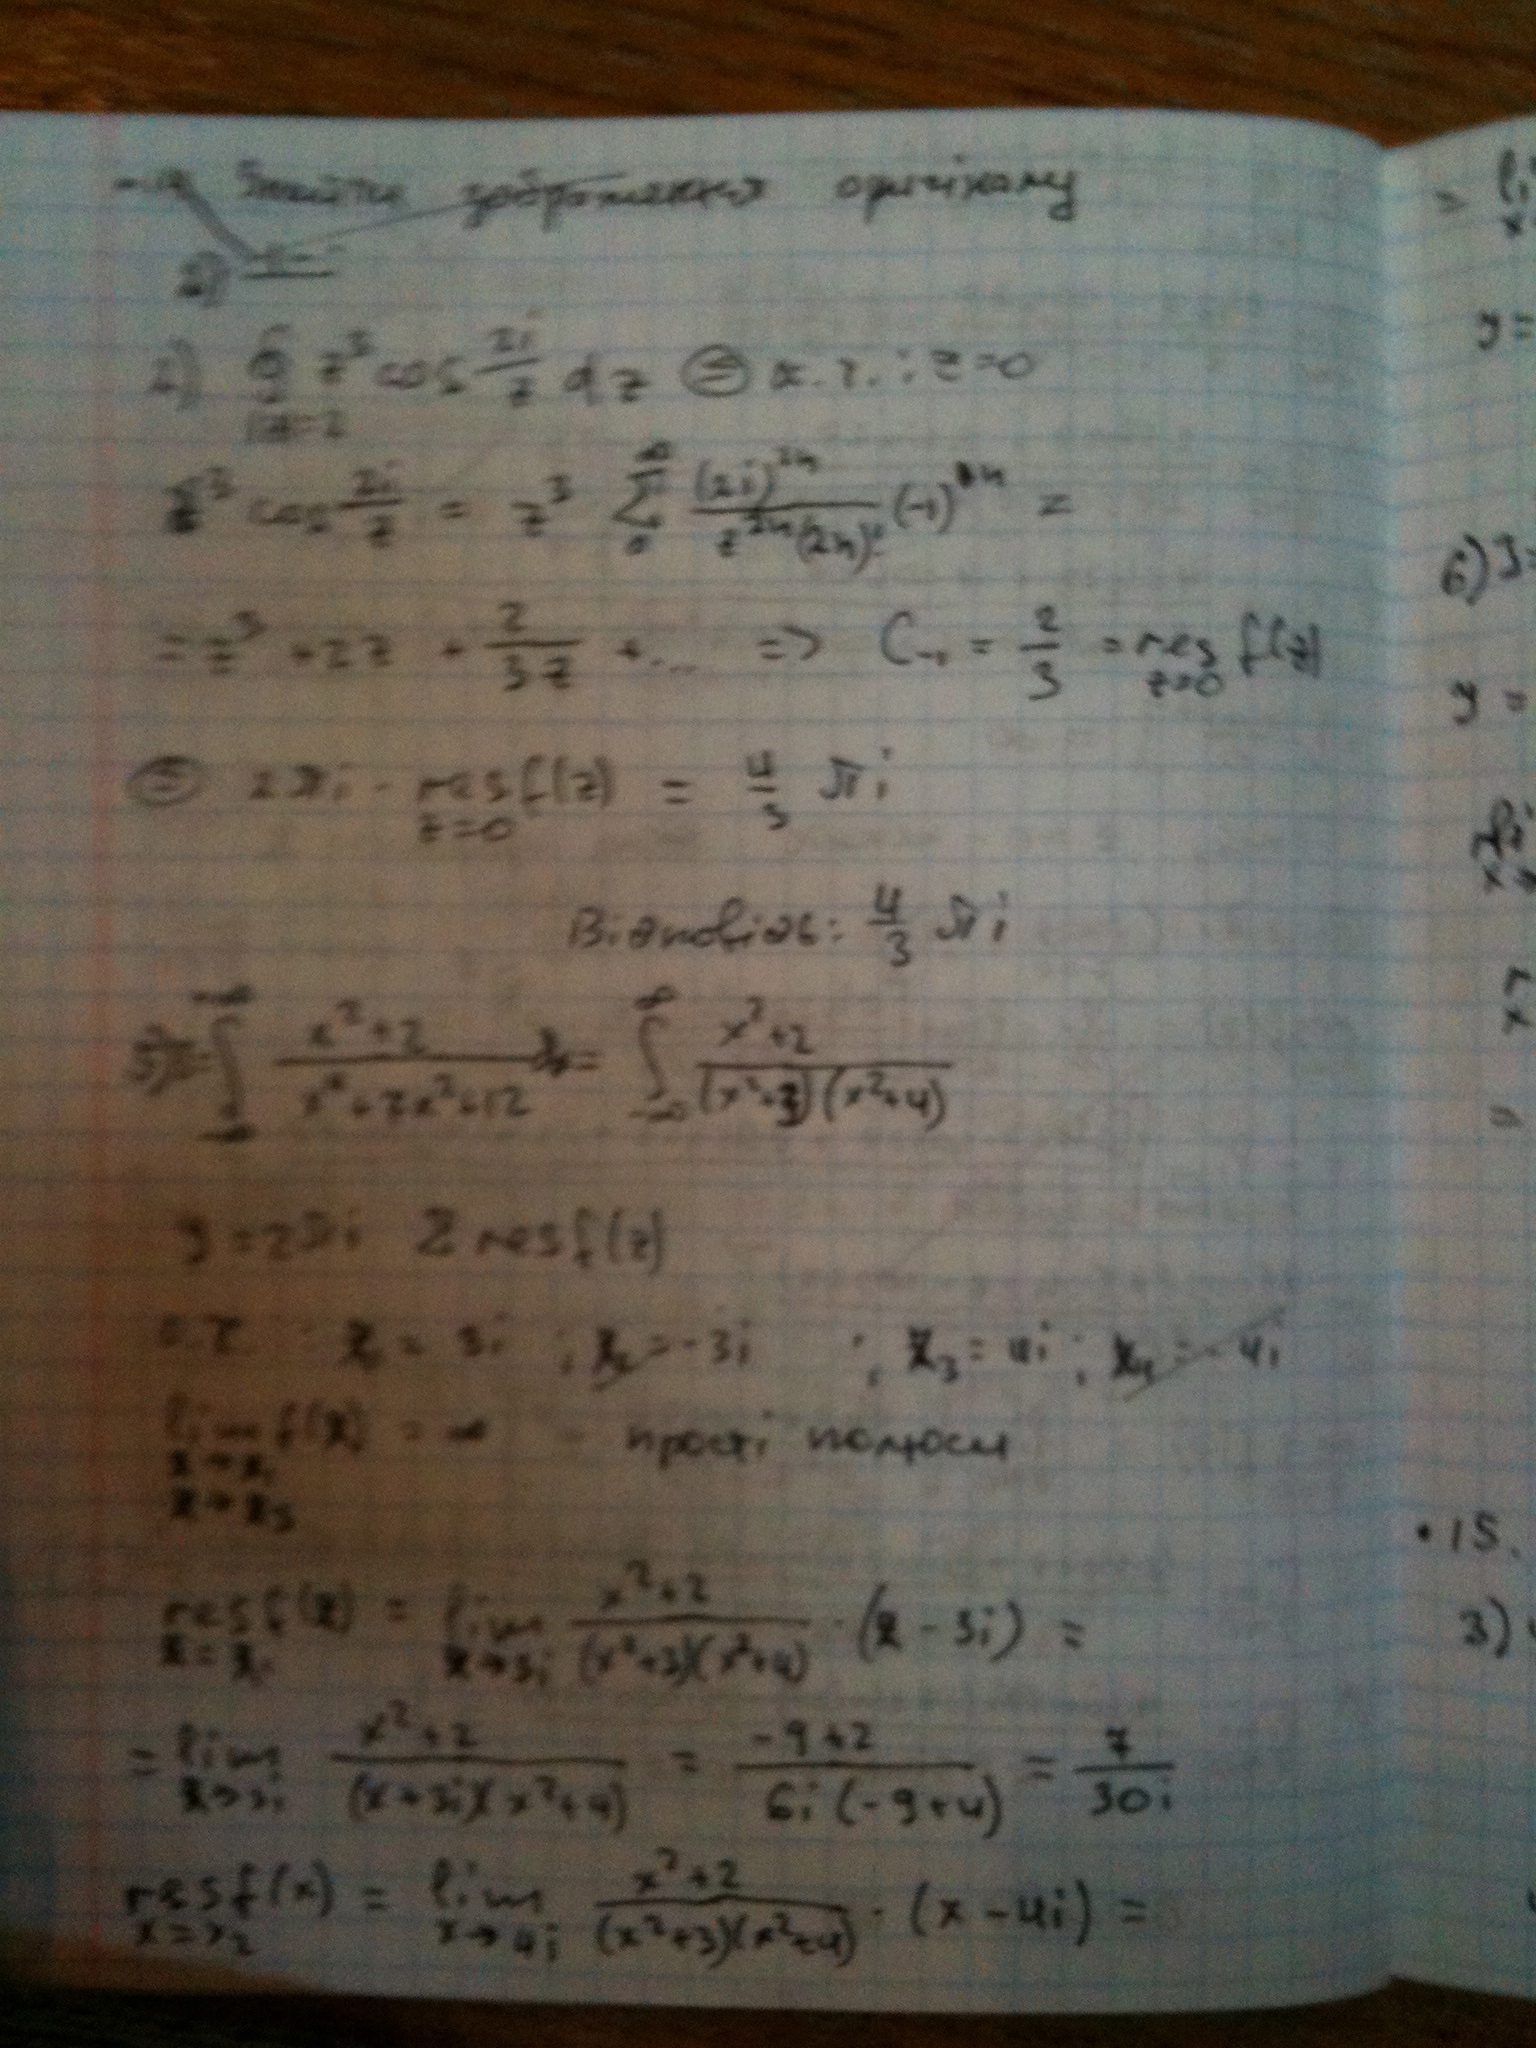 Знайти зображення оригіналу
2)
2) ∮ z³ cos 2i/z dz ⊜ о.т.: z=0
|z|=2
z³ cos 2i/z = z³ ∑ (2i)²ⁿ/(z²ⁿ(2n)!) (-1)ⁿ =
= z³ + 2z + 2/(3z) + ... => C₋₁ = 2/3 = res f(z)
z=0
⊜ 2πi · res f(z) = 4/3 πi
z=0
Відповідь: 4/3 πi
∫ (x²+2)/(x⁴+7x²+12) dx = ∫ (x²+2)/((x²+3)(x²+4))
y = 2πi Σ res f(z)
о.т. : x₁ = 3i ; x₂ = -3i ; x₃ = 4i ; x₄ = -4i
lim f(x) = ∞ - прості полюси
x→x₁
x→x₃
res f(z) = lim (x²+2)/((x²+3)(x²+4)) · (x - 3i) =
x=x₁ x→3i
= lim (x²+2)/((x+3i)(x²+4)) = (-9+2)/(6i(-9+4)) = 7/(30i)
x→3i
res f(x) = lim (x²+2)/((x²+3)(x²+4)) · (x - 4i) =
x=x₂ x→4i
y =
6) J=
y =
=
• 15.
3)